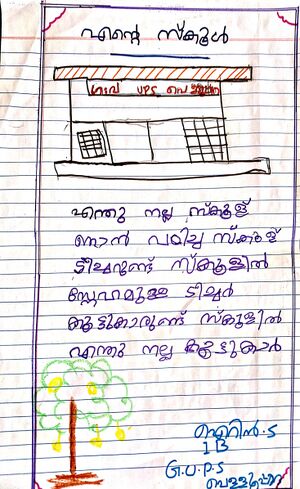 എന്റെ സ്കൂൾ
ഗവ UPS
എന്തു നല്ല സ്കൂള്
ഞാൻ പഠിച്ച സ്കൂള്
ടീച്ചറുണ്ട് സ്കൂളിൽ
സ്നേഹമുള്ള ടീച്ചർ
കൂട്ടുകാരുണ്ട് സ്കൂളിൽ
എന്തു നല്ല കൂട്ടുകാർ
ഐറിൻ. S
1 B
G.U.P.S